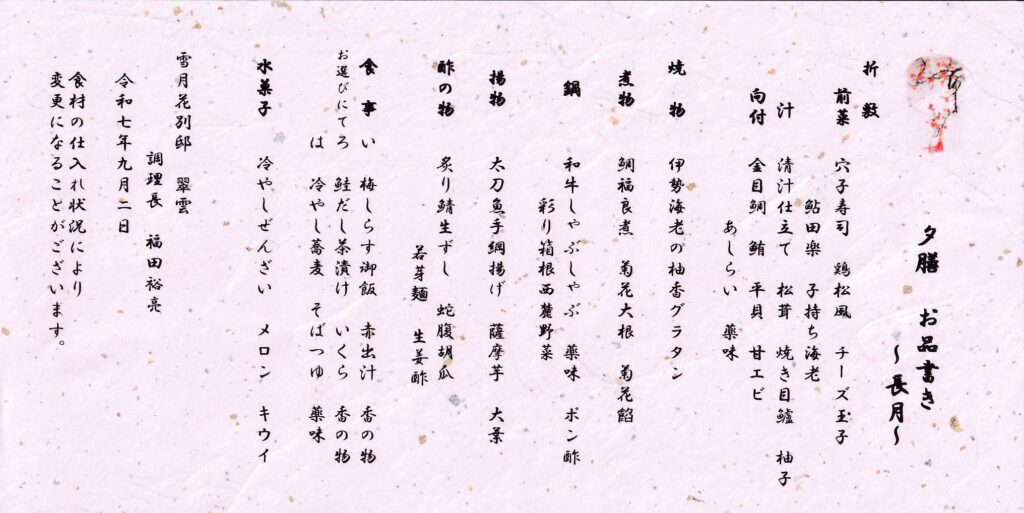 夕膳 お品書き
～長月～
折敷
前菜 穴子寿司 鶏松風 チーズ玉子
鮎田楽 子持ち海老
汁 清汁仕立て 松茸 焼き目鱧 柚子
向付 金目鯛 鮪 平貝 甘エビ
あしらい 薬味
焼物 伊勢海老の柚香グラタン
煮物 鯛福良煮 菊花大根 菊花餡
鍋 和牛しゃぶしゃぶ 薬味 ポン酢
彩り箱根西麓野菜
揚物 太刀魚手綱揚げ 薩摩芋 大葉
酢の物 炙り鯖生ずし 蛇腹胡瓜
若芽麺 生姜酢
食事 い 梅しらす御飯 赤出汁 香の物
お選びにて ろ 鮭だし茶漬け いくら 香の物
は 冷やし蕎麦 そばつゆ 薬味
水菓子 冷やしぜんざい メロン キウイ
雪月花別邸 翠雲
調理長 福田裕亮
令和七年九月二日
食材の仕入れ状況により
変更になることがございます。